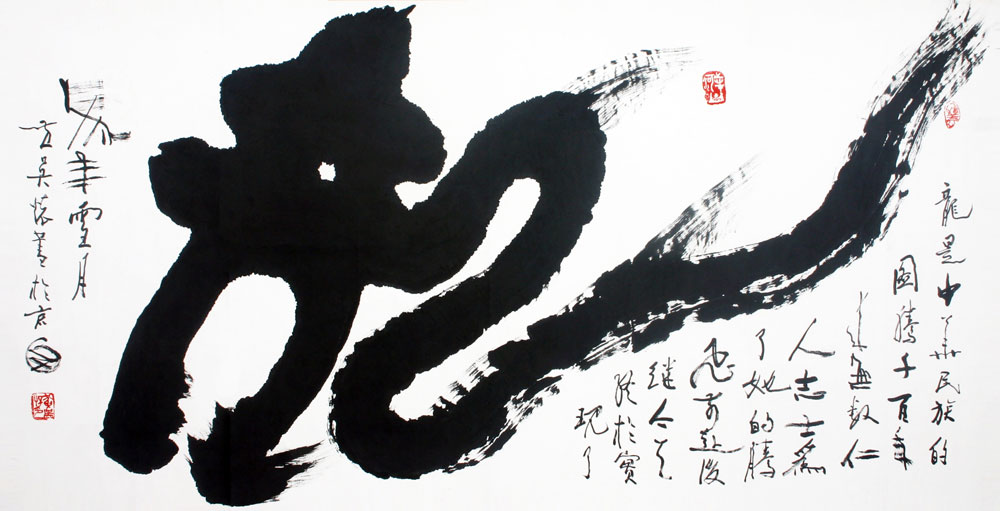 龍
龍是中華民族的
圖騰千百年
來無數仁
人志士為
了她的騰
飛前赴後
繼今天
終於實
現了
年雪月
於京